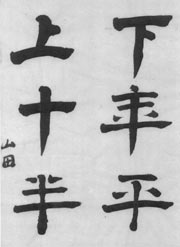 下年平
上十半
山田